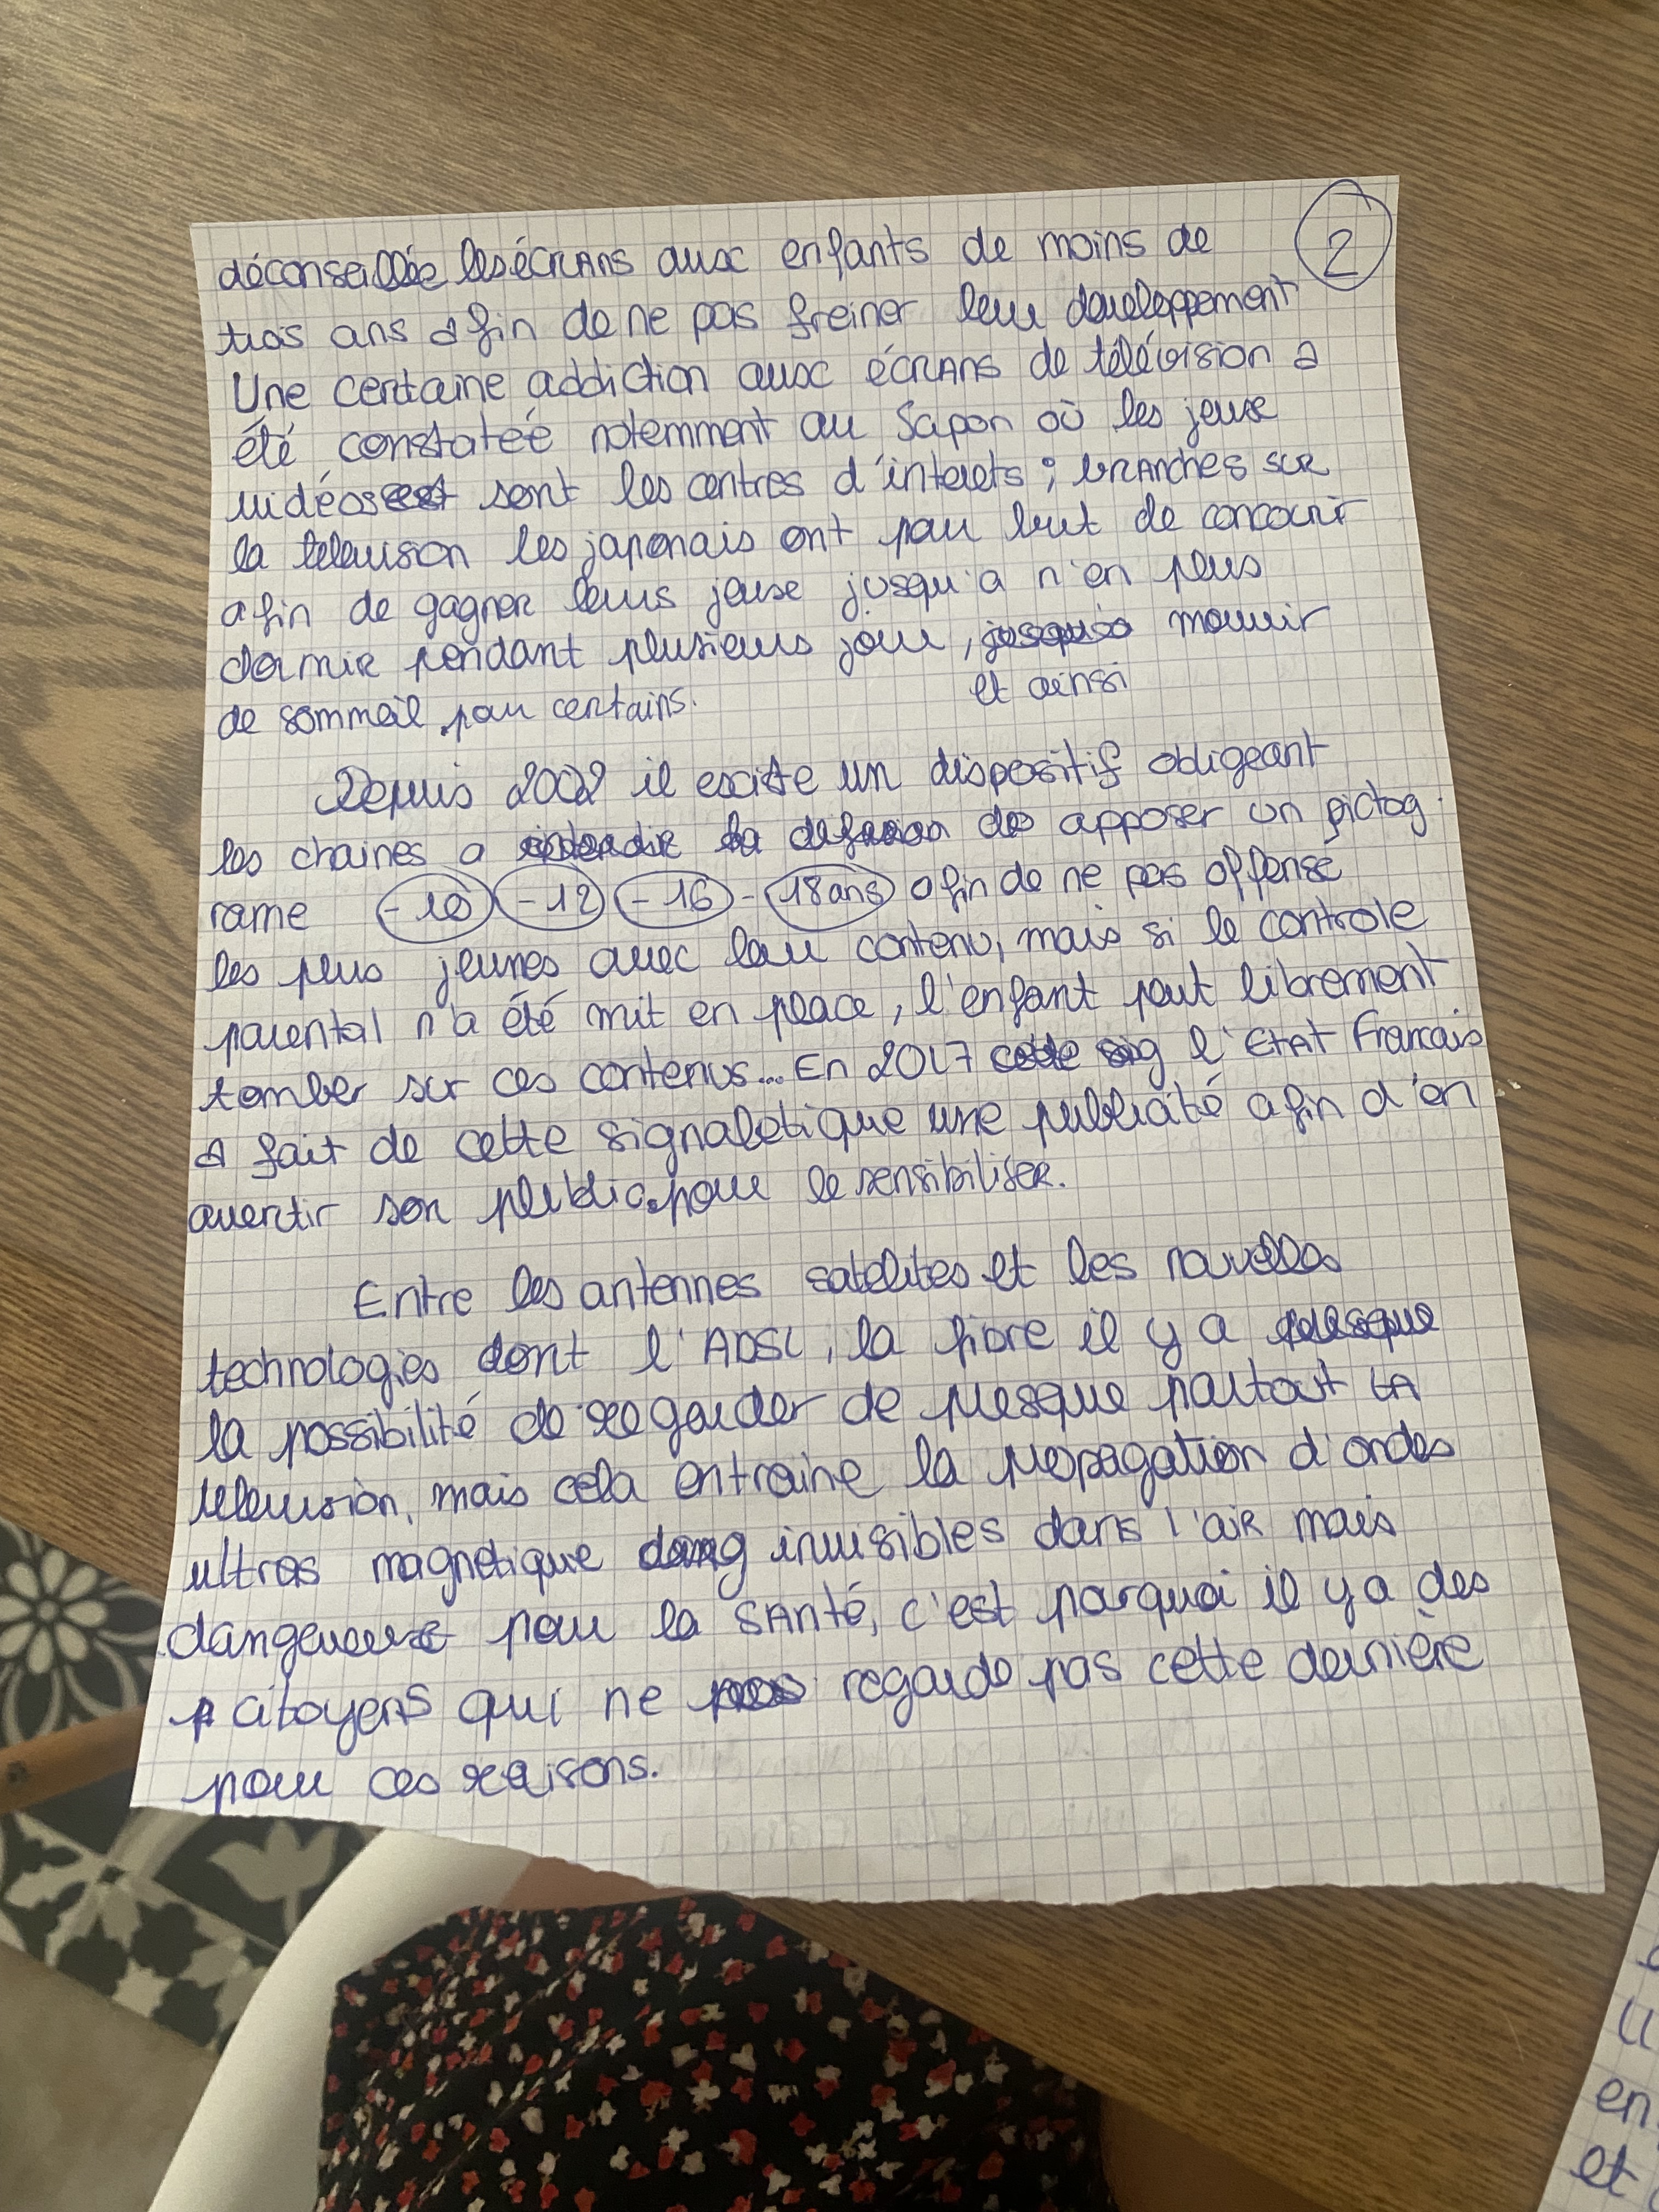 2
déconseillée les écrans aux enfants de moins de
trois ans afin de ne pas freiner leur developpement
Une certaine addiction aux écrans de télévision a
été constatée notemment au Japon où les jeux
vidéos est sont les centres d'interets ; branchés sur
la television les japonais ont pour but de concourir
afin de gagner leurs jeux jusqu'a n'en plus
dormir pendant plusieurs jour, jusqu'a mourir
et ainsi
de sommeil pour certains.
Depuis 2002 il existe un dispositif obligeant
les chaines a interdir la de apposer un pictog
rame -10 -12 -16 -18ans afin de ne pas offensé
les plus jeunes avec leur contenu, mais si le controle
parental n'a été mit en place, l'enfant peut librement
tomber sur ces contenus... En 2017 cette sig l'Etat Francais
a fait de cette signaletique une publicité afin d'en
avertir son public. pour le sensibiliser.
Entre les antennes satelites et les nouvelles
technologies dont l'ADSL, la fibre il y a presque
la possibilité de regarder de presque partout la
television, mais cela entraine la propagation d'ondes
ultras magnetique dang invisibles dans l'air mais
dangeureux pour la santé, c'est pourquoi il y a des
citoyens qui ne pas regarde pas cette dernière
pour ces raisons.
en
et